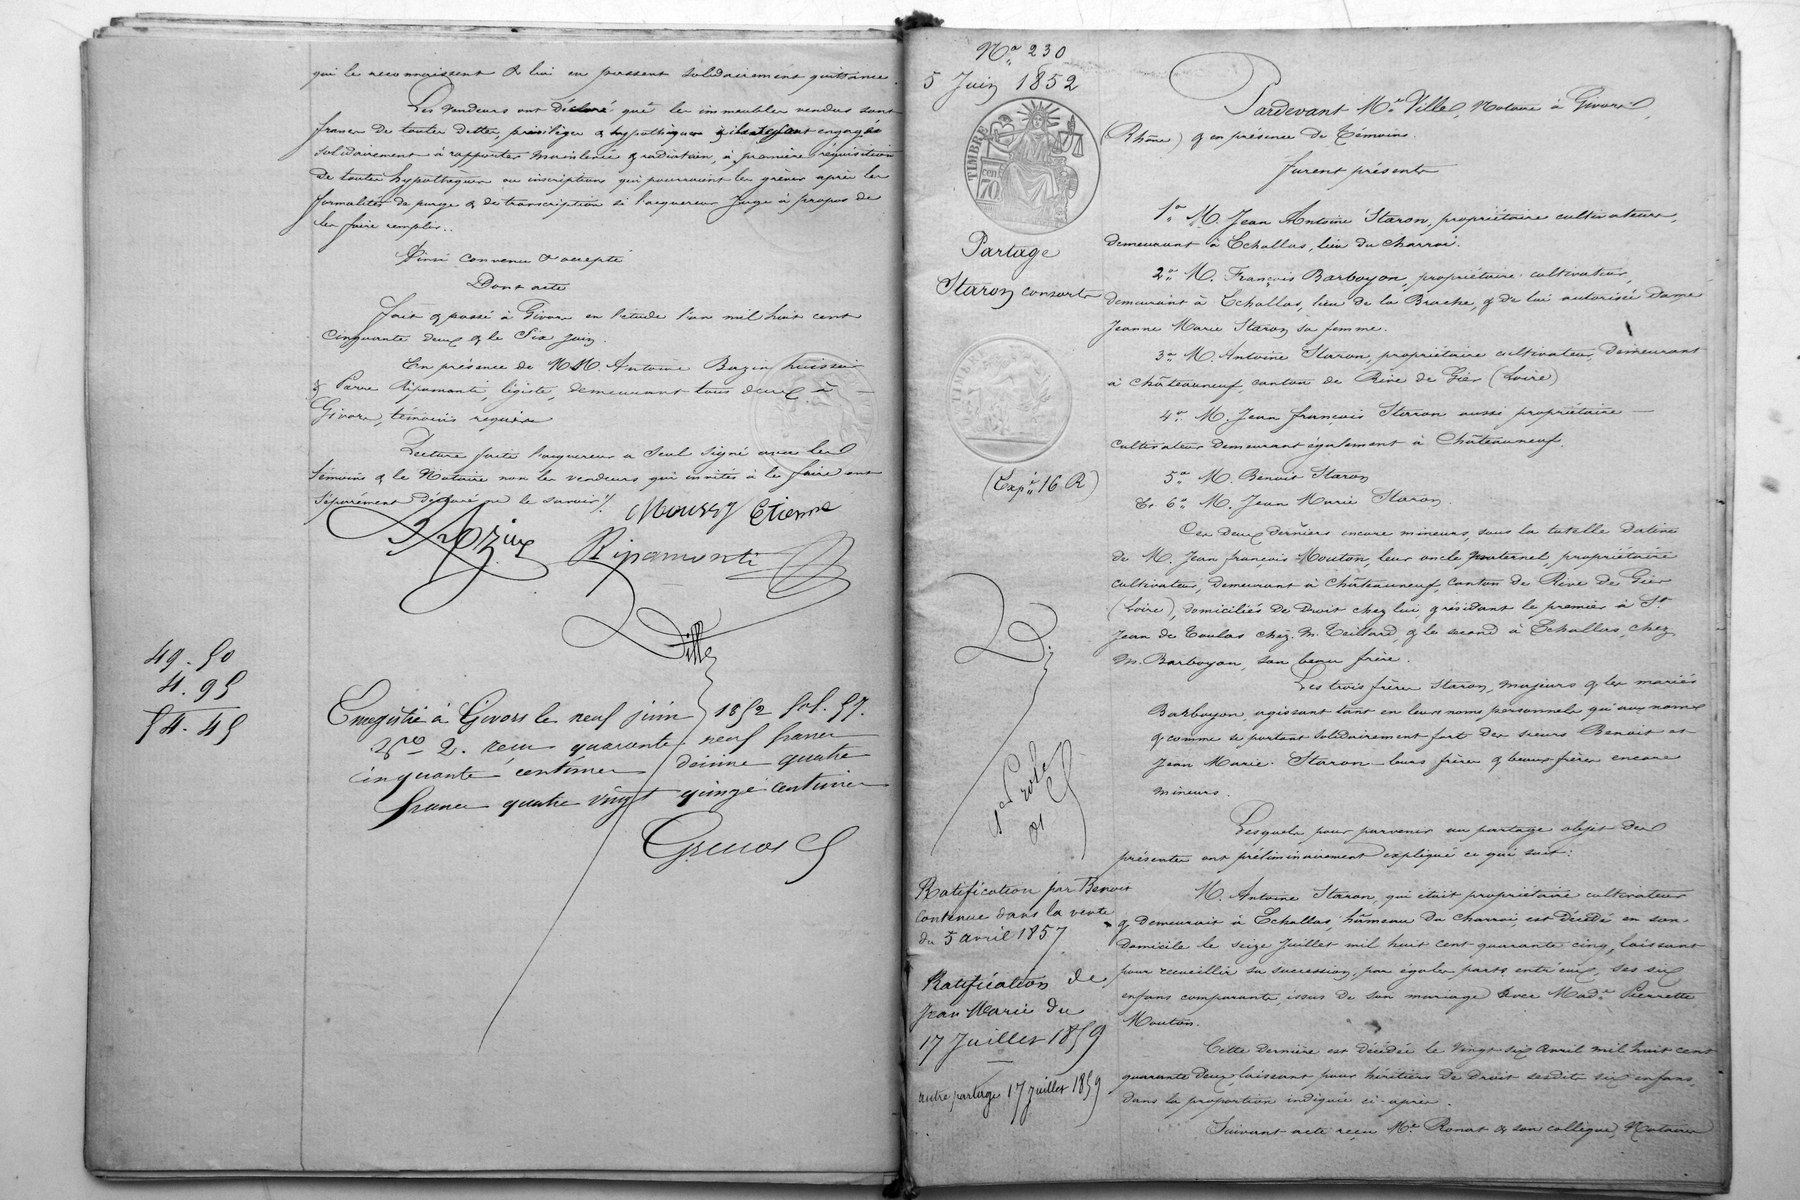 qui le reconnaissent & lui en passent solidairement quittance.
Les vendeurs ont déclaré que les immeubles vendus sont
francs de toutes dettes, privilèges & hypothèques & engagés
solidairement à rapporter mainlevée & radiation, à première réquisition
de toutes hypothèques ou inscriptions qui pourraient les grèver après les
formalités de purge & de transcription si l'acquéreur juge à propos de
les faire remplir..
Ainsi convenu & accepté
Dont acte
Fait & passé à Givors en l'étude l'an mil huit cent
cinquante deux & le Six juin.
En présence de MM Antoine Bazin huissier
& Pierre Ripamonti, légiste, demeurant tous deux à
Givors, témoins requis
Lecture faite l'acquéreur a seul signé avec les
témoins & le Notaire non les vendeurs qui invités à le faire ont
séparément déclaré ne le savoir./.
Moussy Etienne
Ripamonti
Ville
49. 50
4. 95
54. 45
Enregistré à Givors le neuf juin 1852 fol. 57.
Vo 2. reçu quarante neuf francs
cinquante centimes décime quatre
francs quatre vingt quinze centimes
No 230
5 Juin 1852
TIMBRE
70 cen
Partage
Staron consorts
(Expon 16 R)
1er rôle
Ratification par Benoit
contenue dans la vente
du 5 avril 1857
Ratification de
Jean Marie du
17 Juillet 1859
autre partage 17 juillet 1859
Pardevant Me Ville, Notaire à Givors,
(Rhône) & en présence de Témoins.
Furent présents
1o M. Jean Antoine Staron, propriétaire cultivateur,
demeurant à Echallas, lieu du Charroi.
2o M. François Barboyon, propriétaire cultivateur,
demeurant à Echallas, lieu de la Brache, & de lui autorisée dame
Jeanne Marie Staron sa femme.
3o M. Antoine Staron, propriétaire cultivateur, demeurant
à Châteauneuf, canton de Rive de Gier (Loire)
4o M. Jean françois Staron aussi propriétaire
cultivateur demeurant également à Châteauneuf.
5o M. Benoit Staron
Et 6o M. Jean Marie Staron.
Ces deux derniers encore mineurs, sous la tutelle dative
de M. Jean francois Mouton, leur oncle maternel, propriétaire
cultivateur, demeurant à Châteauneuf, canton de Rive de Gier
(Loire), domiciliés de droit chez lui, & résidant le premier à St
Jean de Toulas chez M. Teillard, & le second à Echallas, chez
M. Barboyon, son beau frère.
Les trois frères Staron, majeurs & les mariés
Barboyon, agissant tant en leurs noms personnels qu'aux noms
& comme se portant solidairement fort des sieurs Benoit et
Jean Marie Staron leurs frères & beaux frères encore
mineurs.
Lesquels pour parvenir au partage objet des
présentes ont préliminairement expliqué ce qui suit:
M. Antoine Staron, qui était propriétaire cultivateur
& demeurait à Echallas, hameau du Charroi, est décédé en son
domicile le seize juillet mil huit cent quarante cinq, laissant
pour recueillir sa succession, par égales parts entr'eux, ses six
enfans comparants, issus de son mariage avec Made Pierrette
Mouton.
Cette dernière est décédée le vingt six avril mil huit cent
quarante deux, laissant pour héritiers de droit sesdits six enfans,
dans la proportion indiquée ci-après.
Suivant acte reçu Me Ronat & son collègue, Notaires